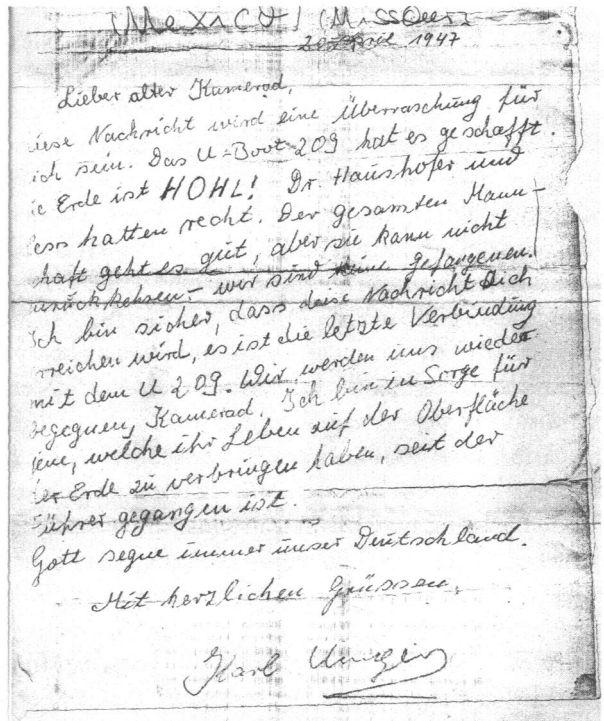 Mexico / (Missouri)
20 April 1947
Lieber alter Kamerad,
iese Nachricht wird eine Überraschung für
ich sein. Das U-Boot 209 hat es geschafft.
ie Erde ist HOHL! Dr. Haushofer und
ess hatten recht. Der gesamten Mann-
haft geht es gut, aber sie kann nicht
zurückkehsen – wir sind keine gefangenen.
Ich bin sicher, dass diese Nachricht Dich
rreichen wird, es ist die letzte Verbindung
mit dem U 209. Wir werden uns wieder
begegnen, Kamerad. Ich bin in Sorge für
jene, welche ihr Leben auf der Oberfläche
der Erde zu verbringen haben, seit der
Führer gegangen ist.
Gott segne immer unser Deutschland.
Mit herzlichen Grüssen,
Karl Unger